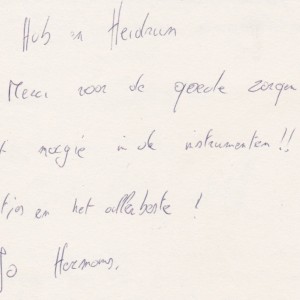 Hub en Heidrun
Merci voor de goede zorgen
in de instrumenten!!
en het allerbeste!
Jo Hermans.